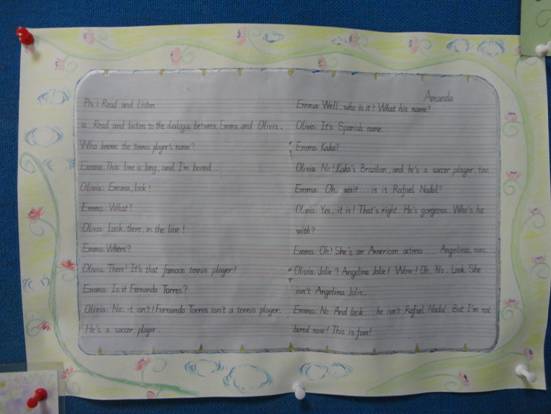 P5: Read and listen
a. Read and listen to the dialogue between Emma and Olivia.
Who knows the tennis player's name?
Emma: This line is long, and I'm bored
Olivia: Emma, look!
Emma: What?
Olivia: Look, there, in the line!
Emma: Where?
Olivia: There! It's that famous tennis player!
Emma: Is it Fernando Torres?
Olivia: No, it isn't! Fernando Torres isn't a tennis player.
He's a soccer player.
Amanda
Emma: Well, who is it? What his name?
Olivia: It's Spanish name.
Emma: Kaka?
Olivia: No! Kaka's Brazilian, and he's a soccer player, too.
Emma: Oh, wait... is it Rafael Nadal?
Olivia: Yes, it is! That's right. He's gorgeous. Who's he
with?
Emma: Oh! She's an American actress... Angelina, num..
Olivia: Jolie? Angelina Jolie! Wow! Oh, No.. Look. She
isn't Angelina Jolie..
Emma: No. And look... he isn't Rafael Nadal. But I'm not
bored now! This is fun!